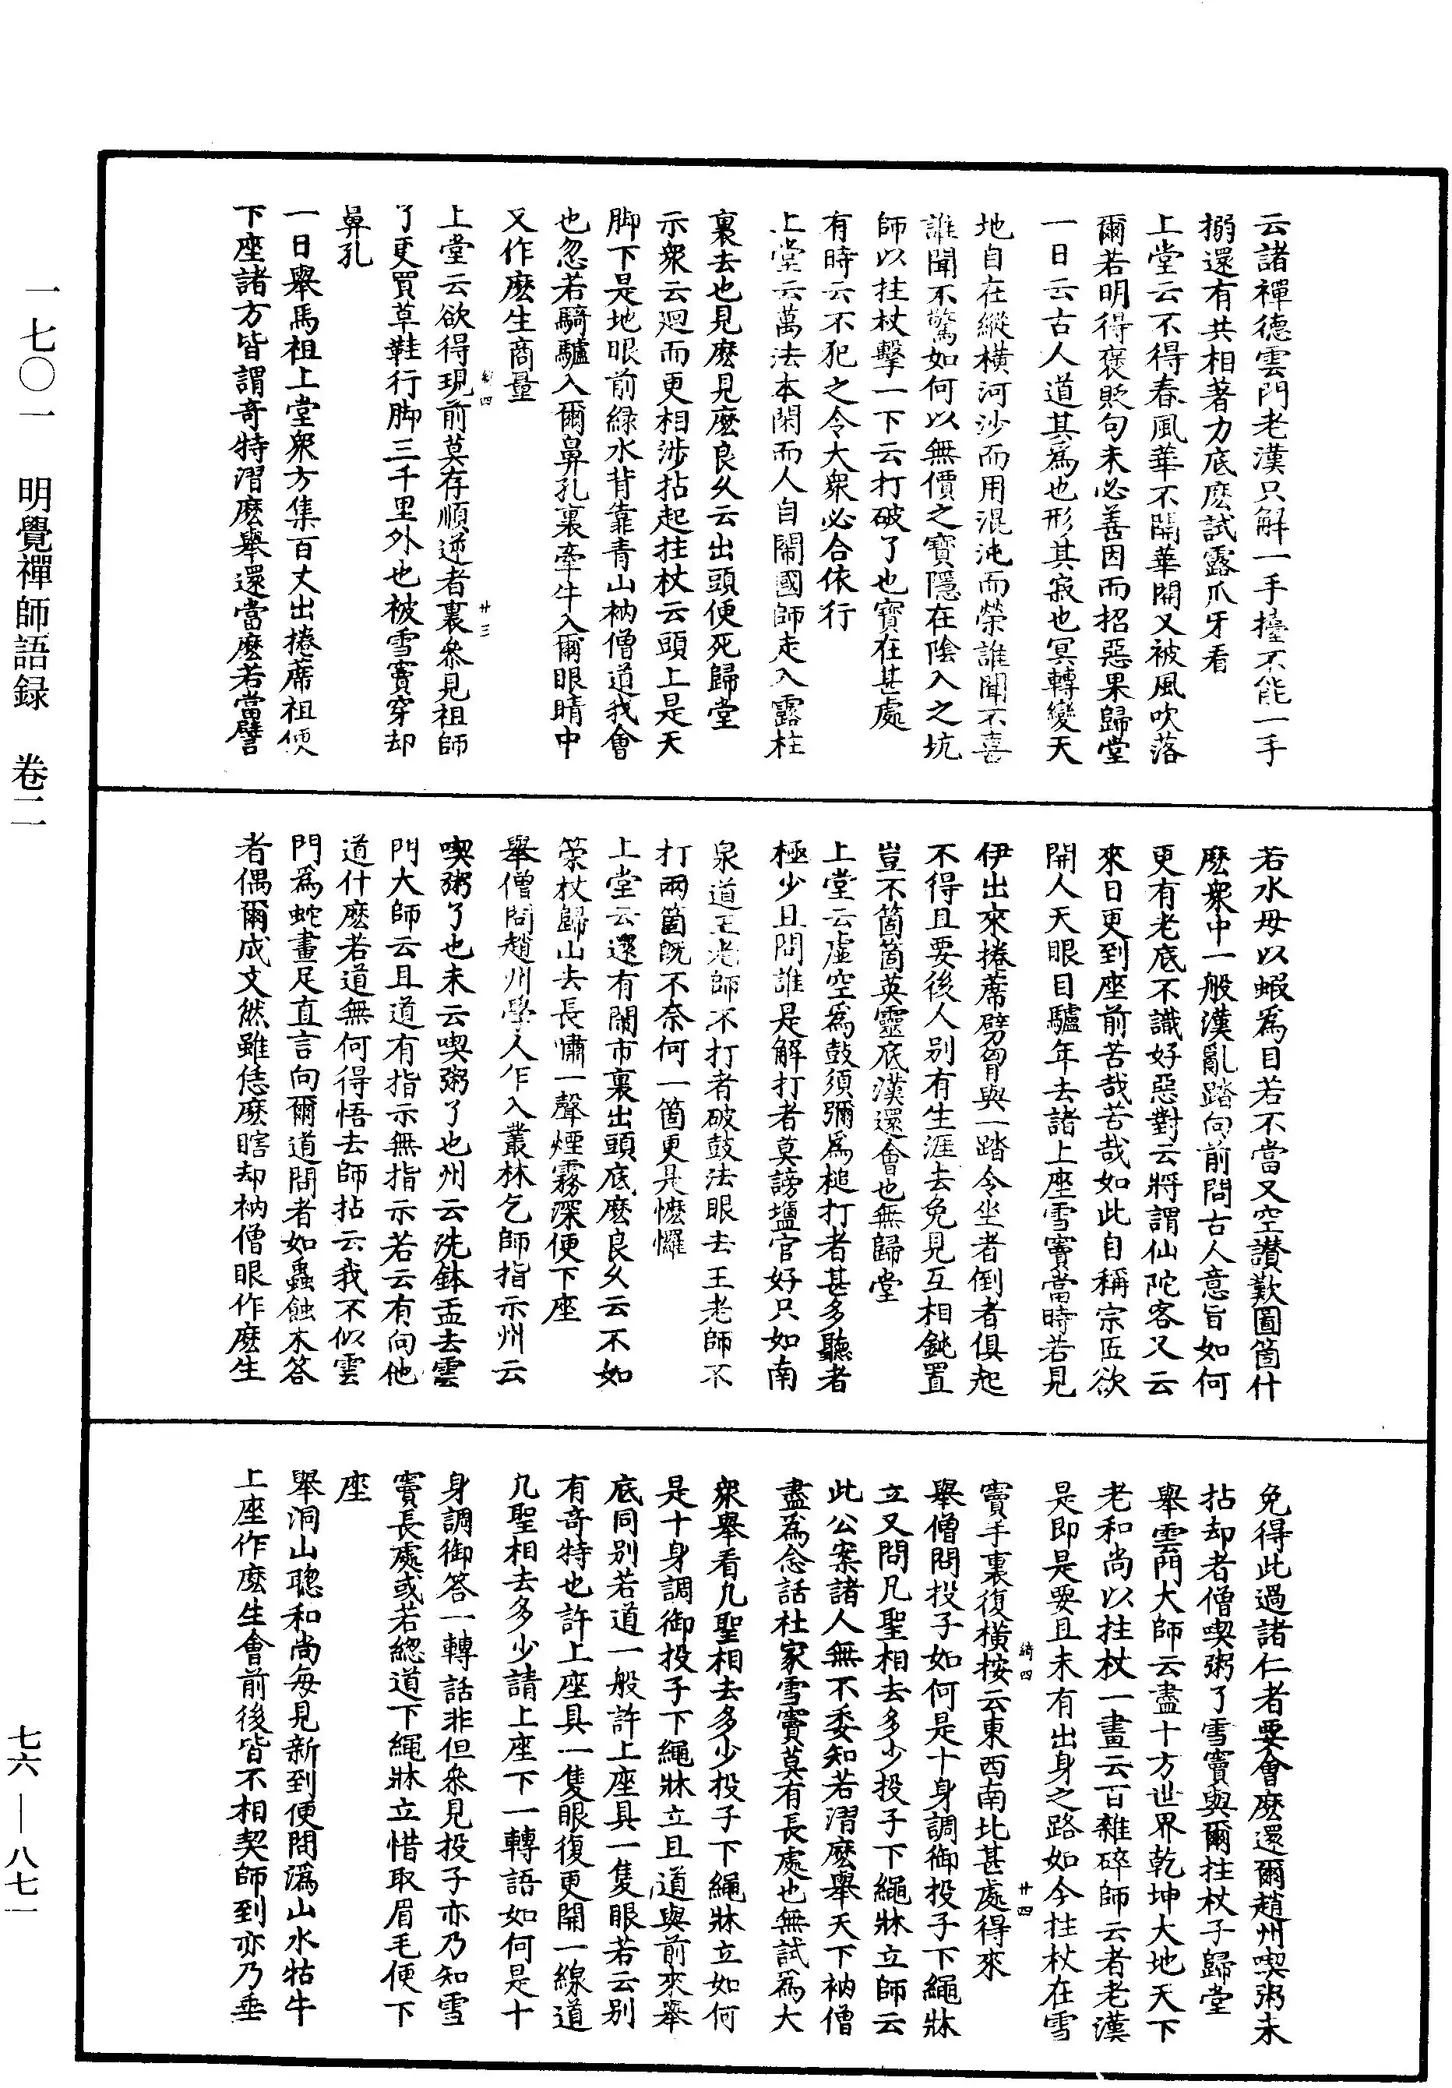 云諸禪德雲門老漢只解一手擡不能一手
搦還有共相著力底麽試露爪牙看
上堂云不得春風華不開華開又被風吹落
爾若明得褒貶句未必善因而招惡果歸堂
一日云古人道其為也形其寂也冥轉變天
地自在縱橫河沙而用混沌而榮誰聞不喜
誰聞不驚如何以無價之寶隱在陰入之坑
師以拄杖擊一下云打破了也寶在甚處
有時云不犯之令大衆必合依行
上堂云萬法本閑而人自鬧國師走入露柱
裏去也見麽見麽良久云出頭便死歸堂
示衆云迴而更相涉拈起拄杖云頭上是天
脚下是地眼前綠水背靠青山衲僧道我會
也忽若騎驢入爾鼻孔裏牽牛入爾眼睛中
又作麽生商量
上堂云欲得現前莫存順逆者裏叅見祖師
了更買草鞋行脚三千里外也被雪竇穿却
鼻孔
一日舉馬祖上堂衆方集百丈出捲席祖便
下座諸方皆謂奇特溜麽舉還當麽若當譬
若水母以蝦為目若不當又空讃歎圖箇什
麽衆中一般漢亂踏向前問古人意旨如何
更有老底不識好惡對云將謂仙陀客又云
來日更到座前苦哉苦哉如此自稱宗匠欲
開人天眼目驢年去諸上座雪竇當時若見
伊出來捲蓆劈胷與一踏令坐者倒者俱起
不得且要後人別有生涯去免見互相鈍置
豈不箇箇英靈底漢還會也無歸堂
上堂云虛空為鼓須彌為槌打者甚多聽者
極少且問誰是解打者莫謗壚官好只如南
泉道王老師不打者破鼓法眼去王老師不
打兩箇既不奈何一箇更是懡㦬
上堂云還有鬧市裏出頭底麽良久云不如
策杖歸山去長嘯一聲煙霧深便下座
舉僧問趙州學人乍入叢林乞師指示州云
喫粥了也未云喫粥了也州云洗鉢盂去雲
門大師云且道有指示無指示若云有向他
道什麽若道無何得悟去師拈云我不似雲
門為蛇畫足直言向爾道問者如蟲蝕木答
者偶爾成文然雖恁麽瞎却衲僧眼作麽生
免得此過諸仁者要會麽還爾趙州喫粥未
拈却者僧喫粥了雪竇與爾拄杖子歸堂
舉雲門大師云盡十方世界乾坤大地天下
老和尚以拄杖一畫云百雜碎師云者老漢
是即是要且未有出身之路如今拄杖在雪
竇手裏復橫按云東西南北甚處得來
舉僧問投子如何是十身調御投子下繩牀
立又問凡聖相去多少投子下繩牀立師云
此公案諸人無不委知若溜麽舉天下衲僧
盡為念話杜家雪竇莫有長處也無試為大
衆舉看凡聖相去多少投子下繩牀立如何
是十身調御投子下繩牀立且道與前來舉
底同別若道一般許上座具一隻眼若云別
有奇特也許上座具一隻眼復更開一線道
凡聖相去多少請上座下一轉語如何是十
身調御答一轉話非但叅見投子亦乃知雪
竇長處或若緫道下繩牀立惜取眉毛便下
座
舉洞山聰和尚每見新到便問溈山水牯牛
上座作麽生會前後皆不相契師到亦乃垂
綺四
廿三
綺四
廿四
一七〇一 明覺禪師語録 卷二
七六—八七一